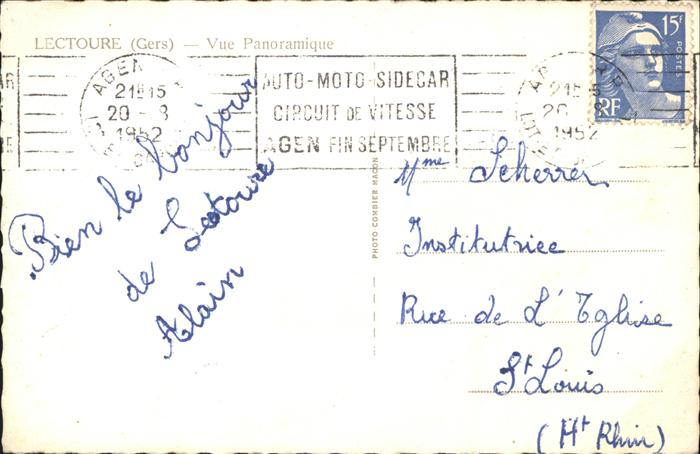 LECTOURE (Gers) — Vue Panoramique
AGEN
21H15
20-8
1952
AUTO-MOTO-SIDECAR
CIRCUIT DE VITESSE
AGEN FIN SEPTEMBRE
21H15
20-8
1952
15F
POSTES
RF
Bien le bonjour
de Lectoure
Alain
PHOTO COMBIER MACON
Mme Scherrer
Institutrice
Rue de L'Eglise
St Louis
(Ht Rhin)